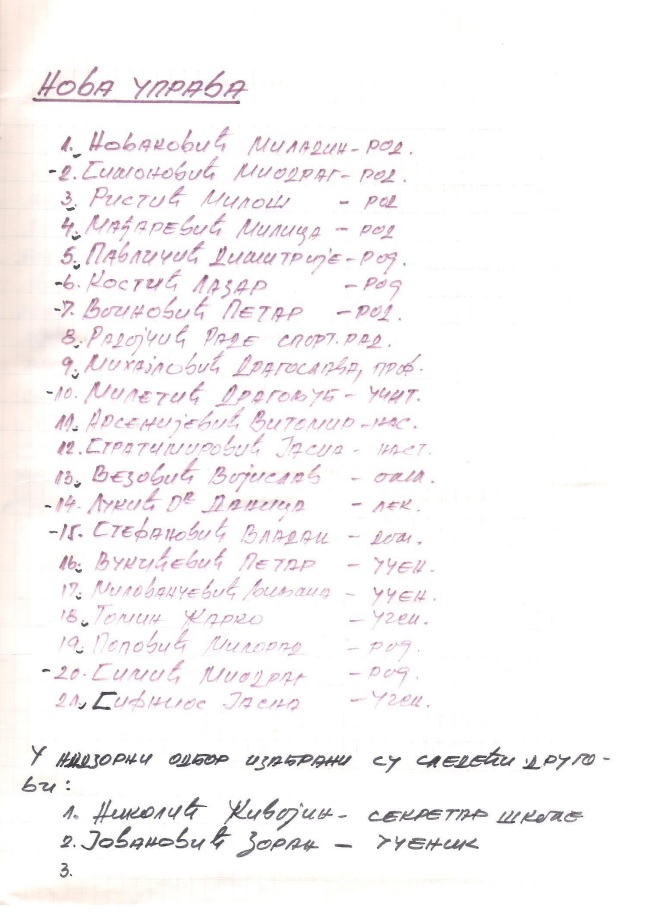 Нова управа
1. Новаковић Миладин - род.
-2. Симоновић Миодраг - род.
3. Ристић Милош - род
4. Мађаревић Милица - род
5. Павличић Димитрије - род.
-6. Костић Лазар - род
-7. Воиновић Петар - род.
8. Радојчић Раде спорт. рад.
9. Михајловић Драгослава, проф.
-10. Милетић Драгољуб - учит.
11. Арсенијевић Витомир - нас.
12. Стратимировић Јасна - наст.
13. Везовић Војислав -
-14. Лукић Dr Даница - лек.
-15. Стефановић Владан - дом.
16. Вукићевић Петар - учен.
17. Миловановић - учен.
18. Томин Жарко - учен.
19. Поповић Милорад - род.
-20. Симић Миодраг - род.
21. Сифниос Јасна - учен.
У надзорни одбор изабрани су следећи друго-
ви:
1. Николић Живојин - секретар школе
2. Јовановић Зоран - ученик
3.